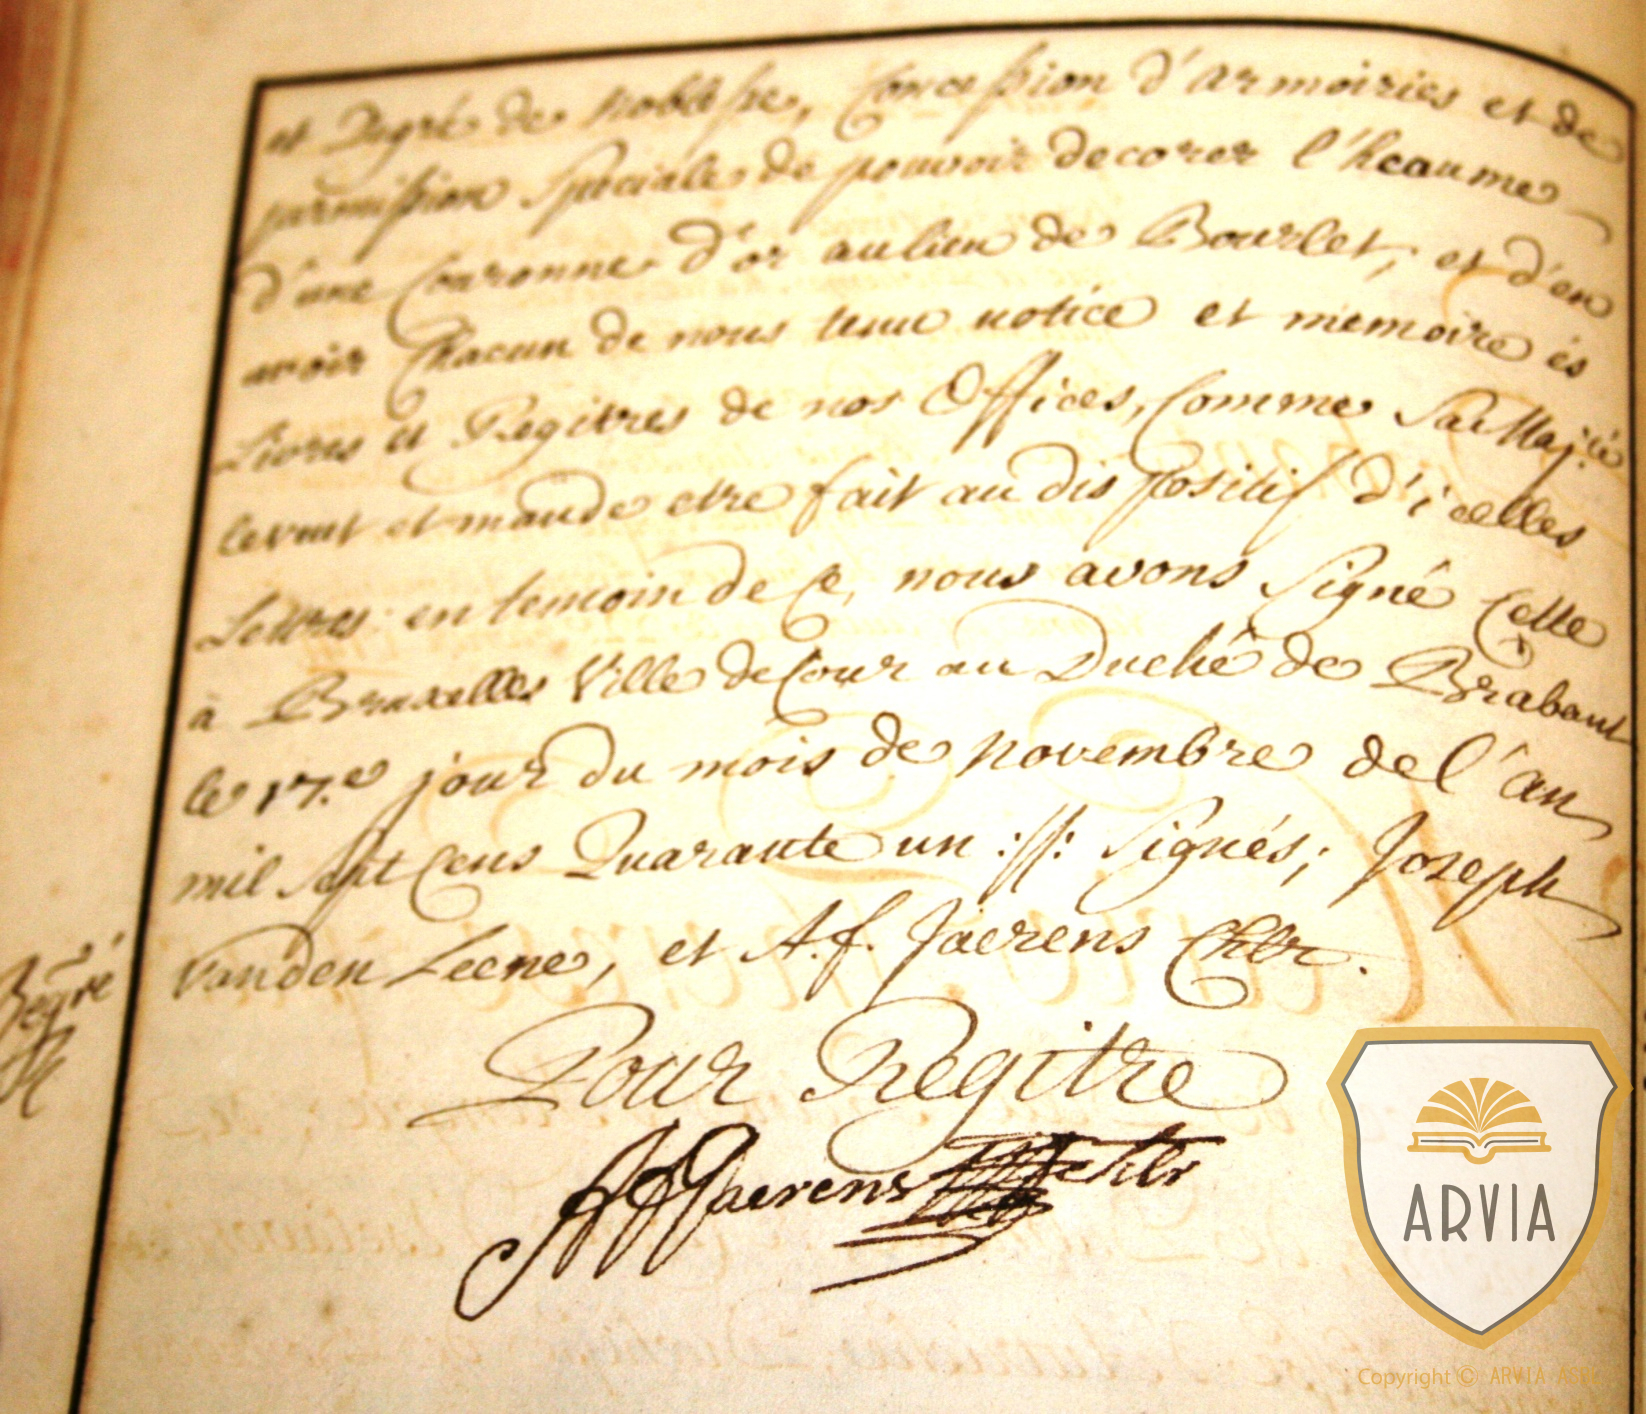 et Degré de Noblesse, Concession d'armoiries et de
permission Speciale de pouvoir decorer l'heaume
d'une Couronne d'or au lieu de Bourlet, et d'en
avoir Chacun de nous tenu notice et memoire és
Livres et Regitres de nos Offices, Comme Sa Maj.té
le veut et mande etre fait au dispositif d'icelles
Lettres: en temoin de Ce, nous avons Signé Cette
à Bruxelles Ville de Cour au Duché de Brabant
le 17.e jour du mois de Novembre de l'an
mil Sept Cens Quarante un :/: Signés; Joseph
Vanden Leene, et A.f. Jaerens Chlr.
Pour Regitre
AF Jaerens Chlr
ARVIA
Copyright © ARVIA ASBL